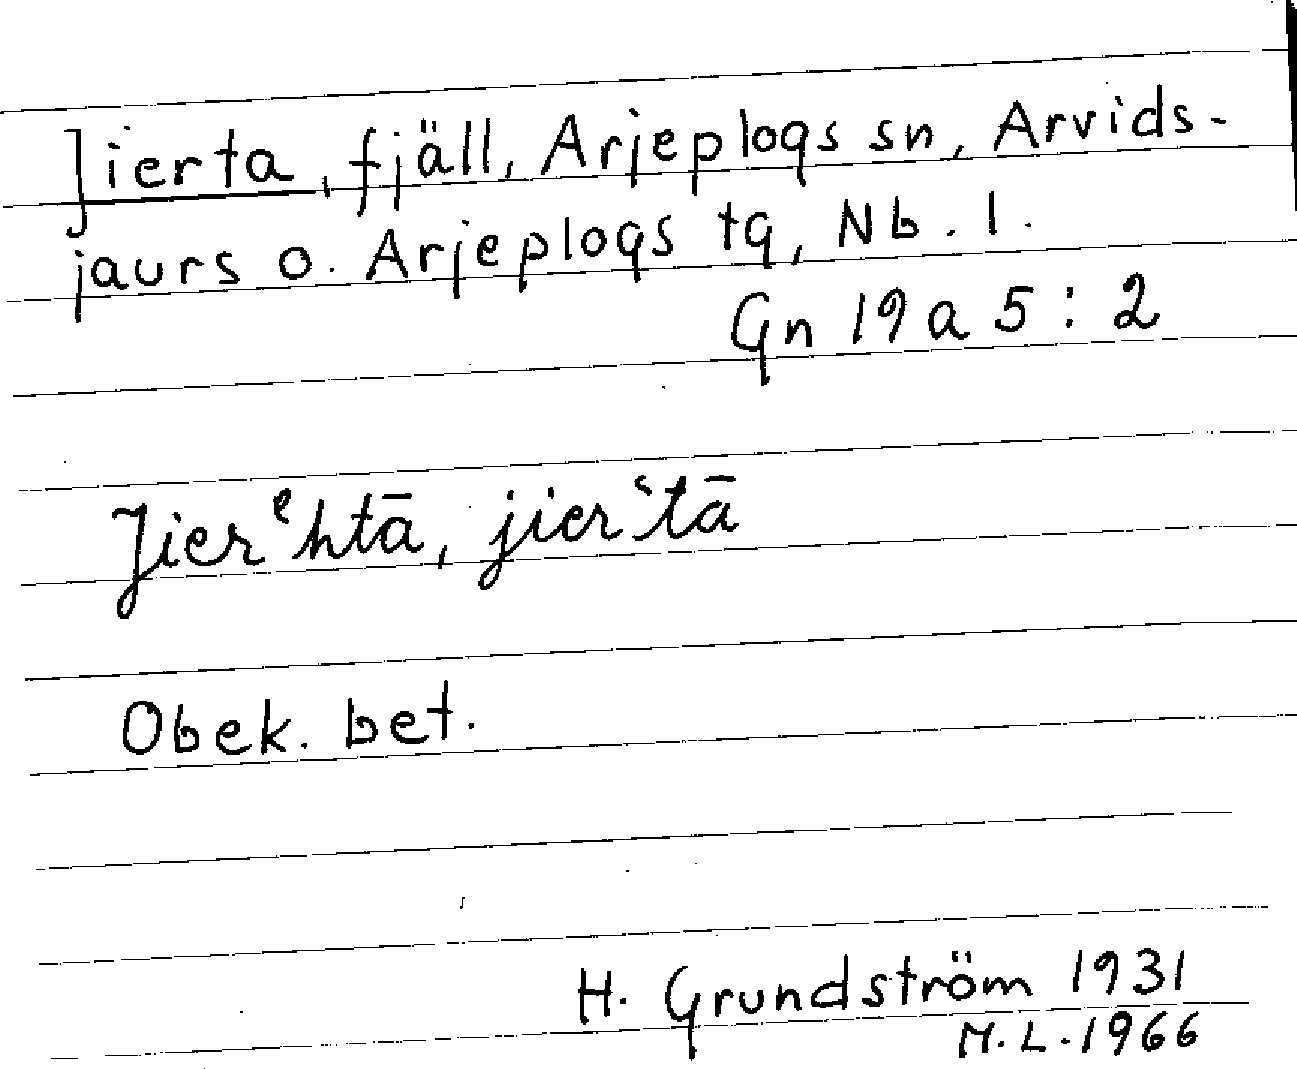 Jierta, fjäll, Arjeplogs sn, Arvids-
jaurs o. Arjeplogs tg, Nb. l.
Gn 19 a 5 : 2
Jierᵉhtā, jierʿtā
Obek. bet.
H. Grundström 1931
M.L. 1966